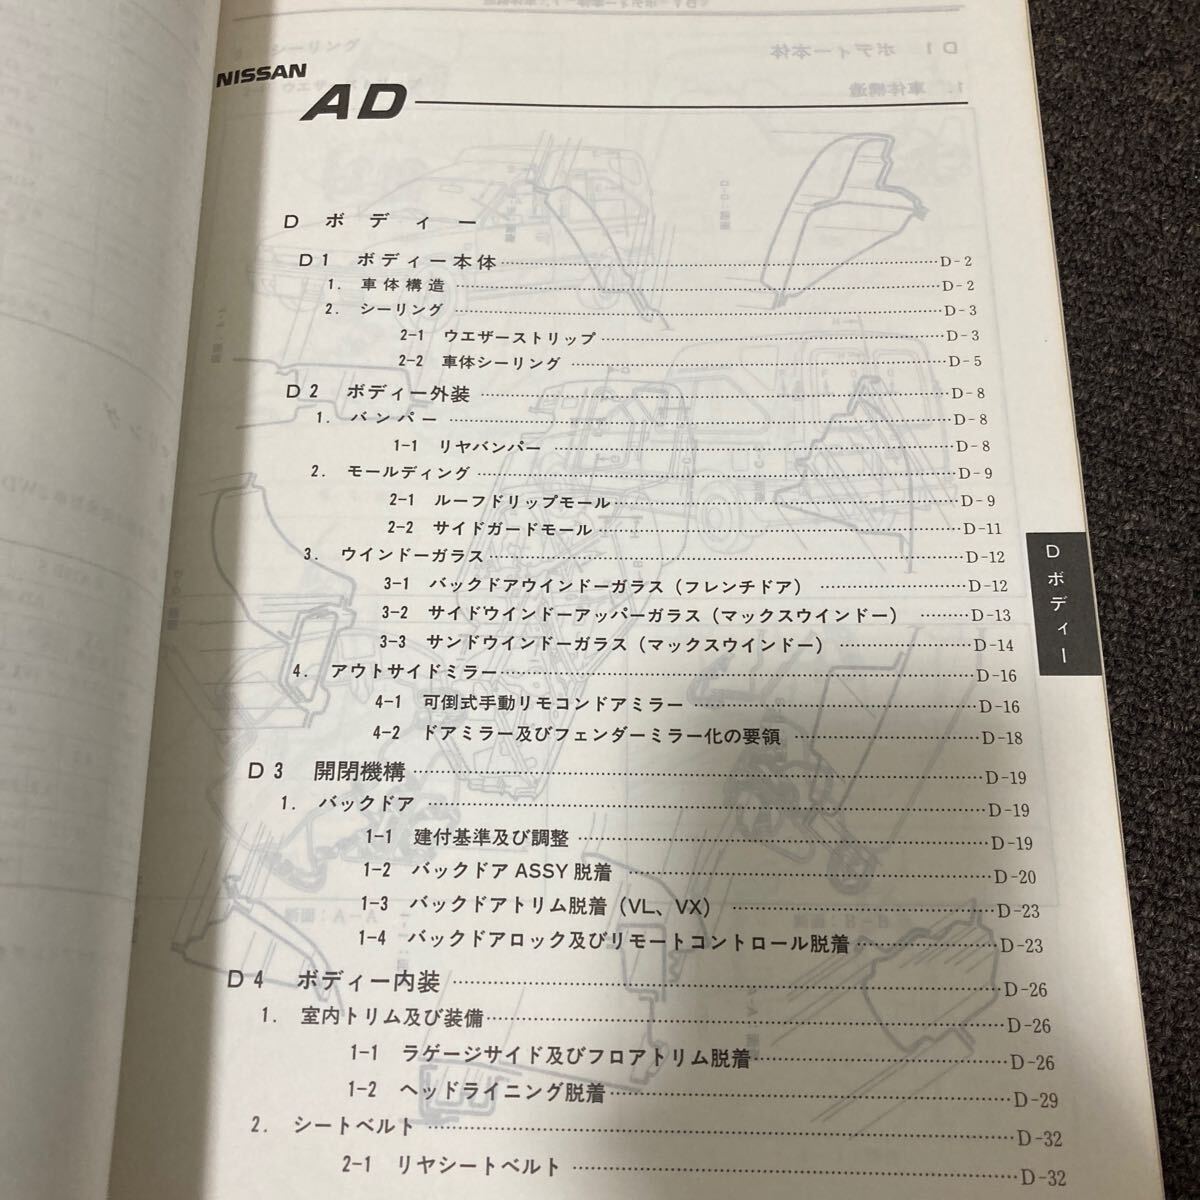 NISSAN
AD
D ボディー
D1 ボディー本体 D-2
1. 車体構造 D-2
2. シーリング D-3
2-1 ウエザーストリップ D-3
2-2 車体シーリング D-5
D2 ボディー外装 D-8
1. バンパー D-8
1-1 リヤバンパー D-8
2. モールディング D-9
2-1 ルーフドリップモール D-9
2-2 サイドガードモール D-11
3. ウインドーガラス D-12
3-1 バックドアウインドーガラス（フレンチドア） D-12
3-2 サイドウインドーアッパーガラス（マックスウインドー） D-13
3-3 サンドウインドーガラス（マックスウインドー） D-14
4. アウトサイドミラー D-16
4-1 可倒式手動リモコンドアミラー D-16
4-2 ドアミラー及びフェンダーミラー化の要領 D-18
D3 開閉機構 D-19
1. バックドア D-19
1-1 建付基準及び調整 D-19
1-2 バックドアASSY脱着 D-20
1-3 バックドアトリム脱着（VL、VX） D-23
1-4 バックドアロック及びリモートコントロール脱着 D-23
D4 ボディー内装 D-26
1. 室内トリム及び装備 D-26
1-1 ラゲージサイド及びフロアトリム脱着 D-26
1-2 ヘッドライニング脱着 D-29
2. シートベルト D-32
2-1 リヤシートベルト D-32
D ボディー